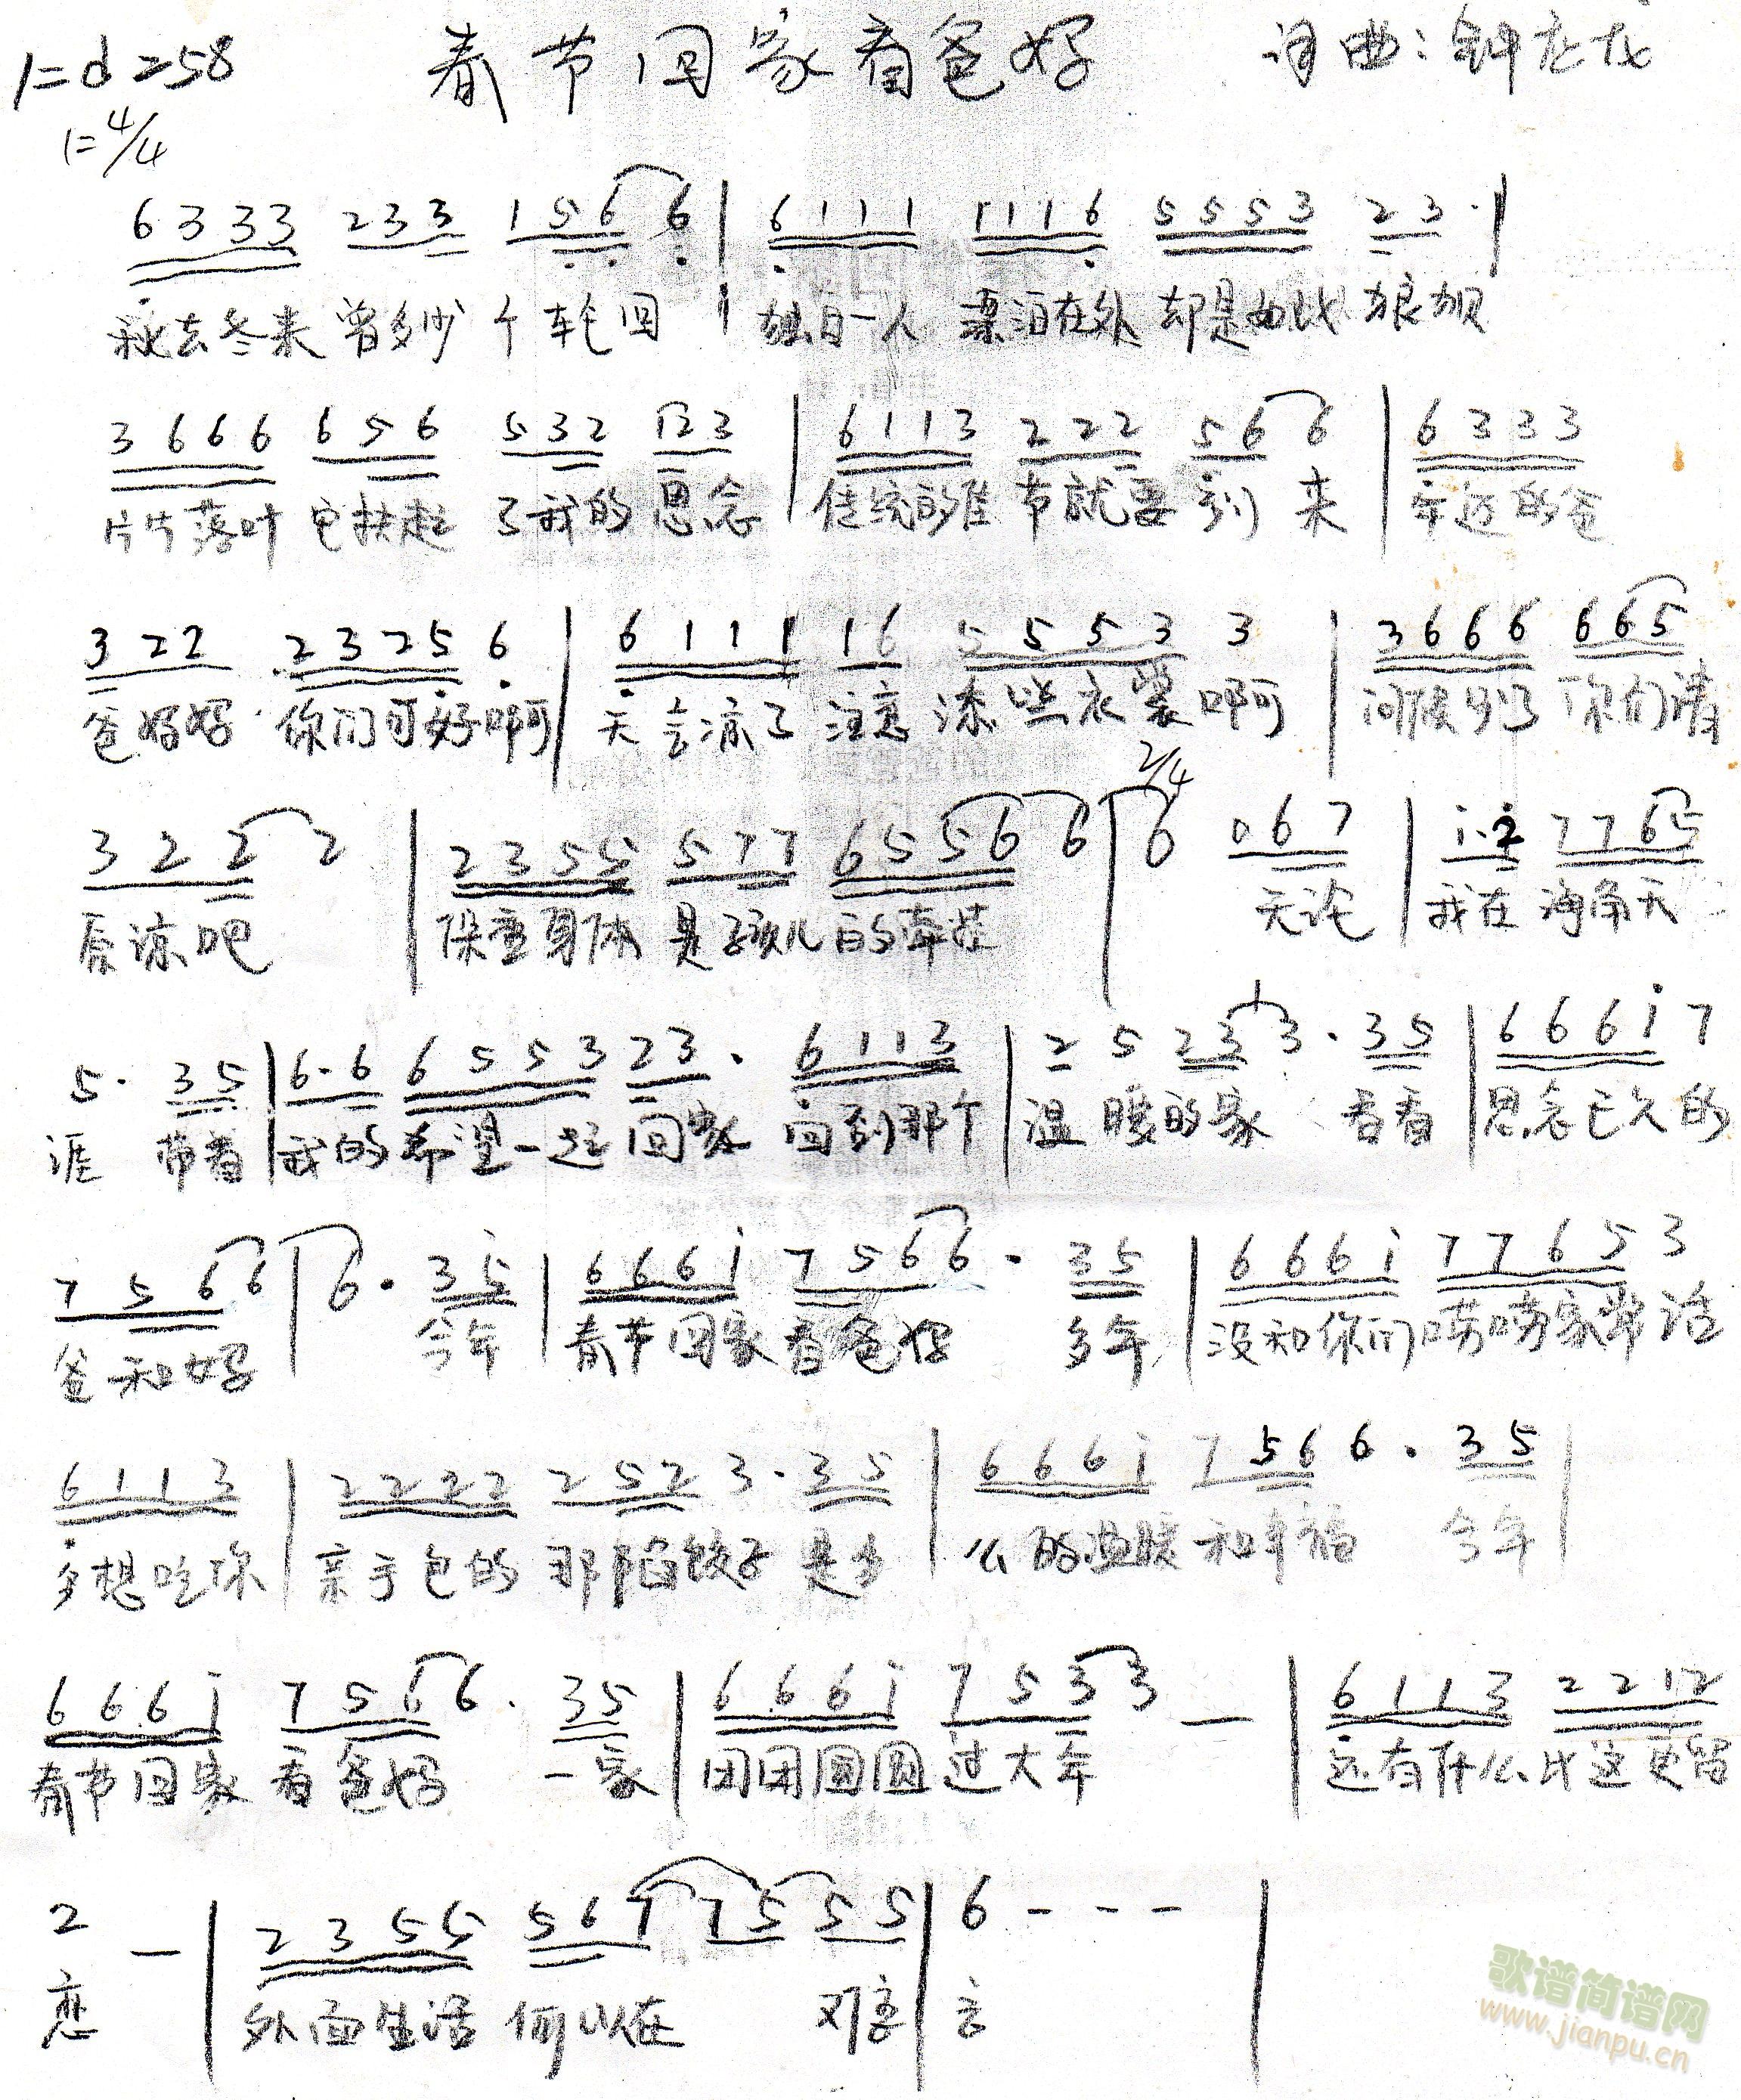 1=d=58 春节回家看爸妈 词曲:钟龙龙
1=4/4
6 3 3 3 2 3 3 1 5 6 6 | 6 1 1 1 1 1 1 6 5 5 5 3 2 3 · |
秋去冬来 曾多少 个 轮回 | 独自一人 漂泊在外 却是如此 狼狈
3 6 6 6 6 5 6 5 3 2 1 2 3 | 6 1 1 3 2 2 2 5 6 6 | 6 3 3 3
片片落叶 它扶起 了我的 思念 | 传统的佳 节就要 到 来 | 年迈的爸
3 2 2 2 3 2 5 6 | 6 1 1 1 1 6 5 5 5 3 3 | 3 6 6 6 6 6 5
爸妈妈 你们可好啊 | 天会凉了 注意 添些衣裳 啊 | 问候少了 你们请
2/4
3 2 2 2 | 2 3 5 5 5 7 7 6 5 5 6 6 | 6 0 6 7 | i · 2 7 7 6 5
原谅吧 | 保重身体 是孩儿的牵挂 | 无论 | 我在 海角天
5 · 3 5 | 6 · 6 6 5 5 3 2 3 · 6 1 1 3 | 2 5 2 3 3 · 3 5 | 6 6 6 i 7
涯 带着 | 我的希望一起 回家 回到那个 | 温暖的家 看看 | 思念已久的
7 5 6 6 | 6 · 3 5 | 6 6 6 i 7 5 6 6 · 3 5 | 6 6 6 i 7 7 6 5 3
爸和妈 | 今年 | 春节回家 看爸妈 多年 | 没和你们唠唠家常话
6 1 1 3 | 2 2 2 2 2 5 2 3 · 3 5 | 6 6 6 i 7 5 6 6 · 3 5 |
多想吃你 | 亲手包的 那陷饺子 是多 | 么的温暖 和幸福 今年 |
6 6 6 i 7 5 6 6 · 3 5 | 6 6 6 i 7 5 3 3 — | 6 1 1 3 2 2 1 2
春节回家 看爸妈 一家 | 团团圆圆 过大年 | 还有什么比这更留
2 — | 2 3 5 5 5 6 7 7 5 5 5 | 6 - - - |
恋 | 外面生活 何以在 | 言
歌谱简谱网
www.jianpu.cn